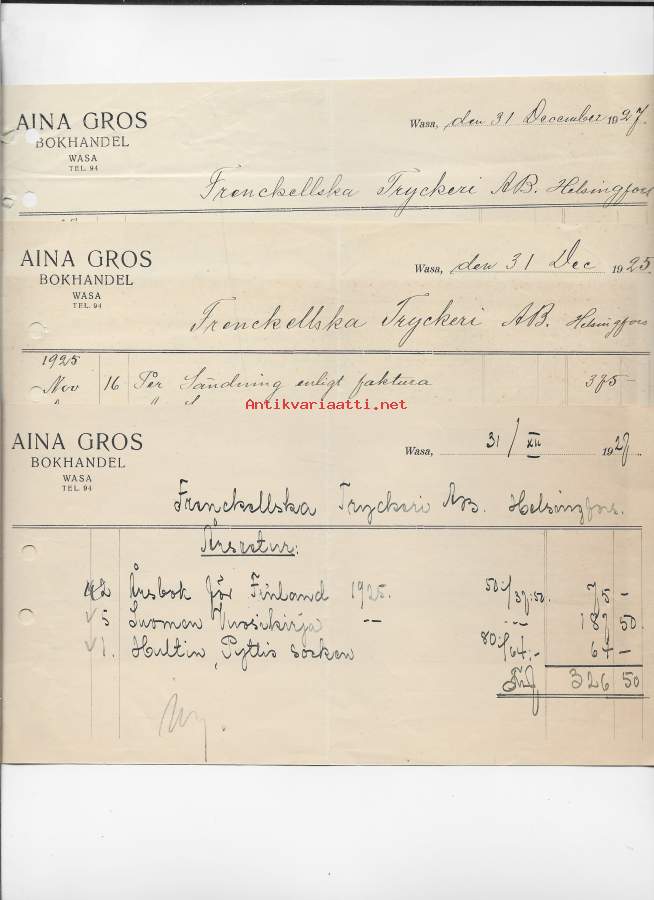 AINA GROS
BOKHANDEL
WASA
TEL. 94
Wasa, den 31 December 1927.
Frenckellska Tryckeri AB. Helsingfors
AINA GROS
BOKHANDEL
WASA
TEL. 94
Wasa, den 31 Dec 1925.
Frenckellska Tryckeri AB. Helsingfors
1925
Nov 16 Per Sändning enligt faktura 375 –
Antikvariaatti.net
AINA GROS
BOKHANDEL
WASA
TEL. 94
Wasa, 31/XII 1927.
Frenckellska Tryckeri AB. Helsingfors.
Årsretur:
2 Årsbok för Finland 1925. 50:/37:50. 75 –
5 Suomen Vuosikirja –〃– –〃– 187 50.
1. Hultin, Pyttis socken 80:/64:- 64 –
Fmk 326 50